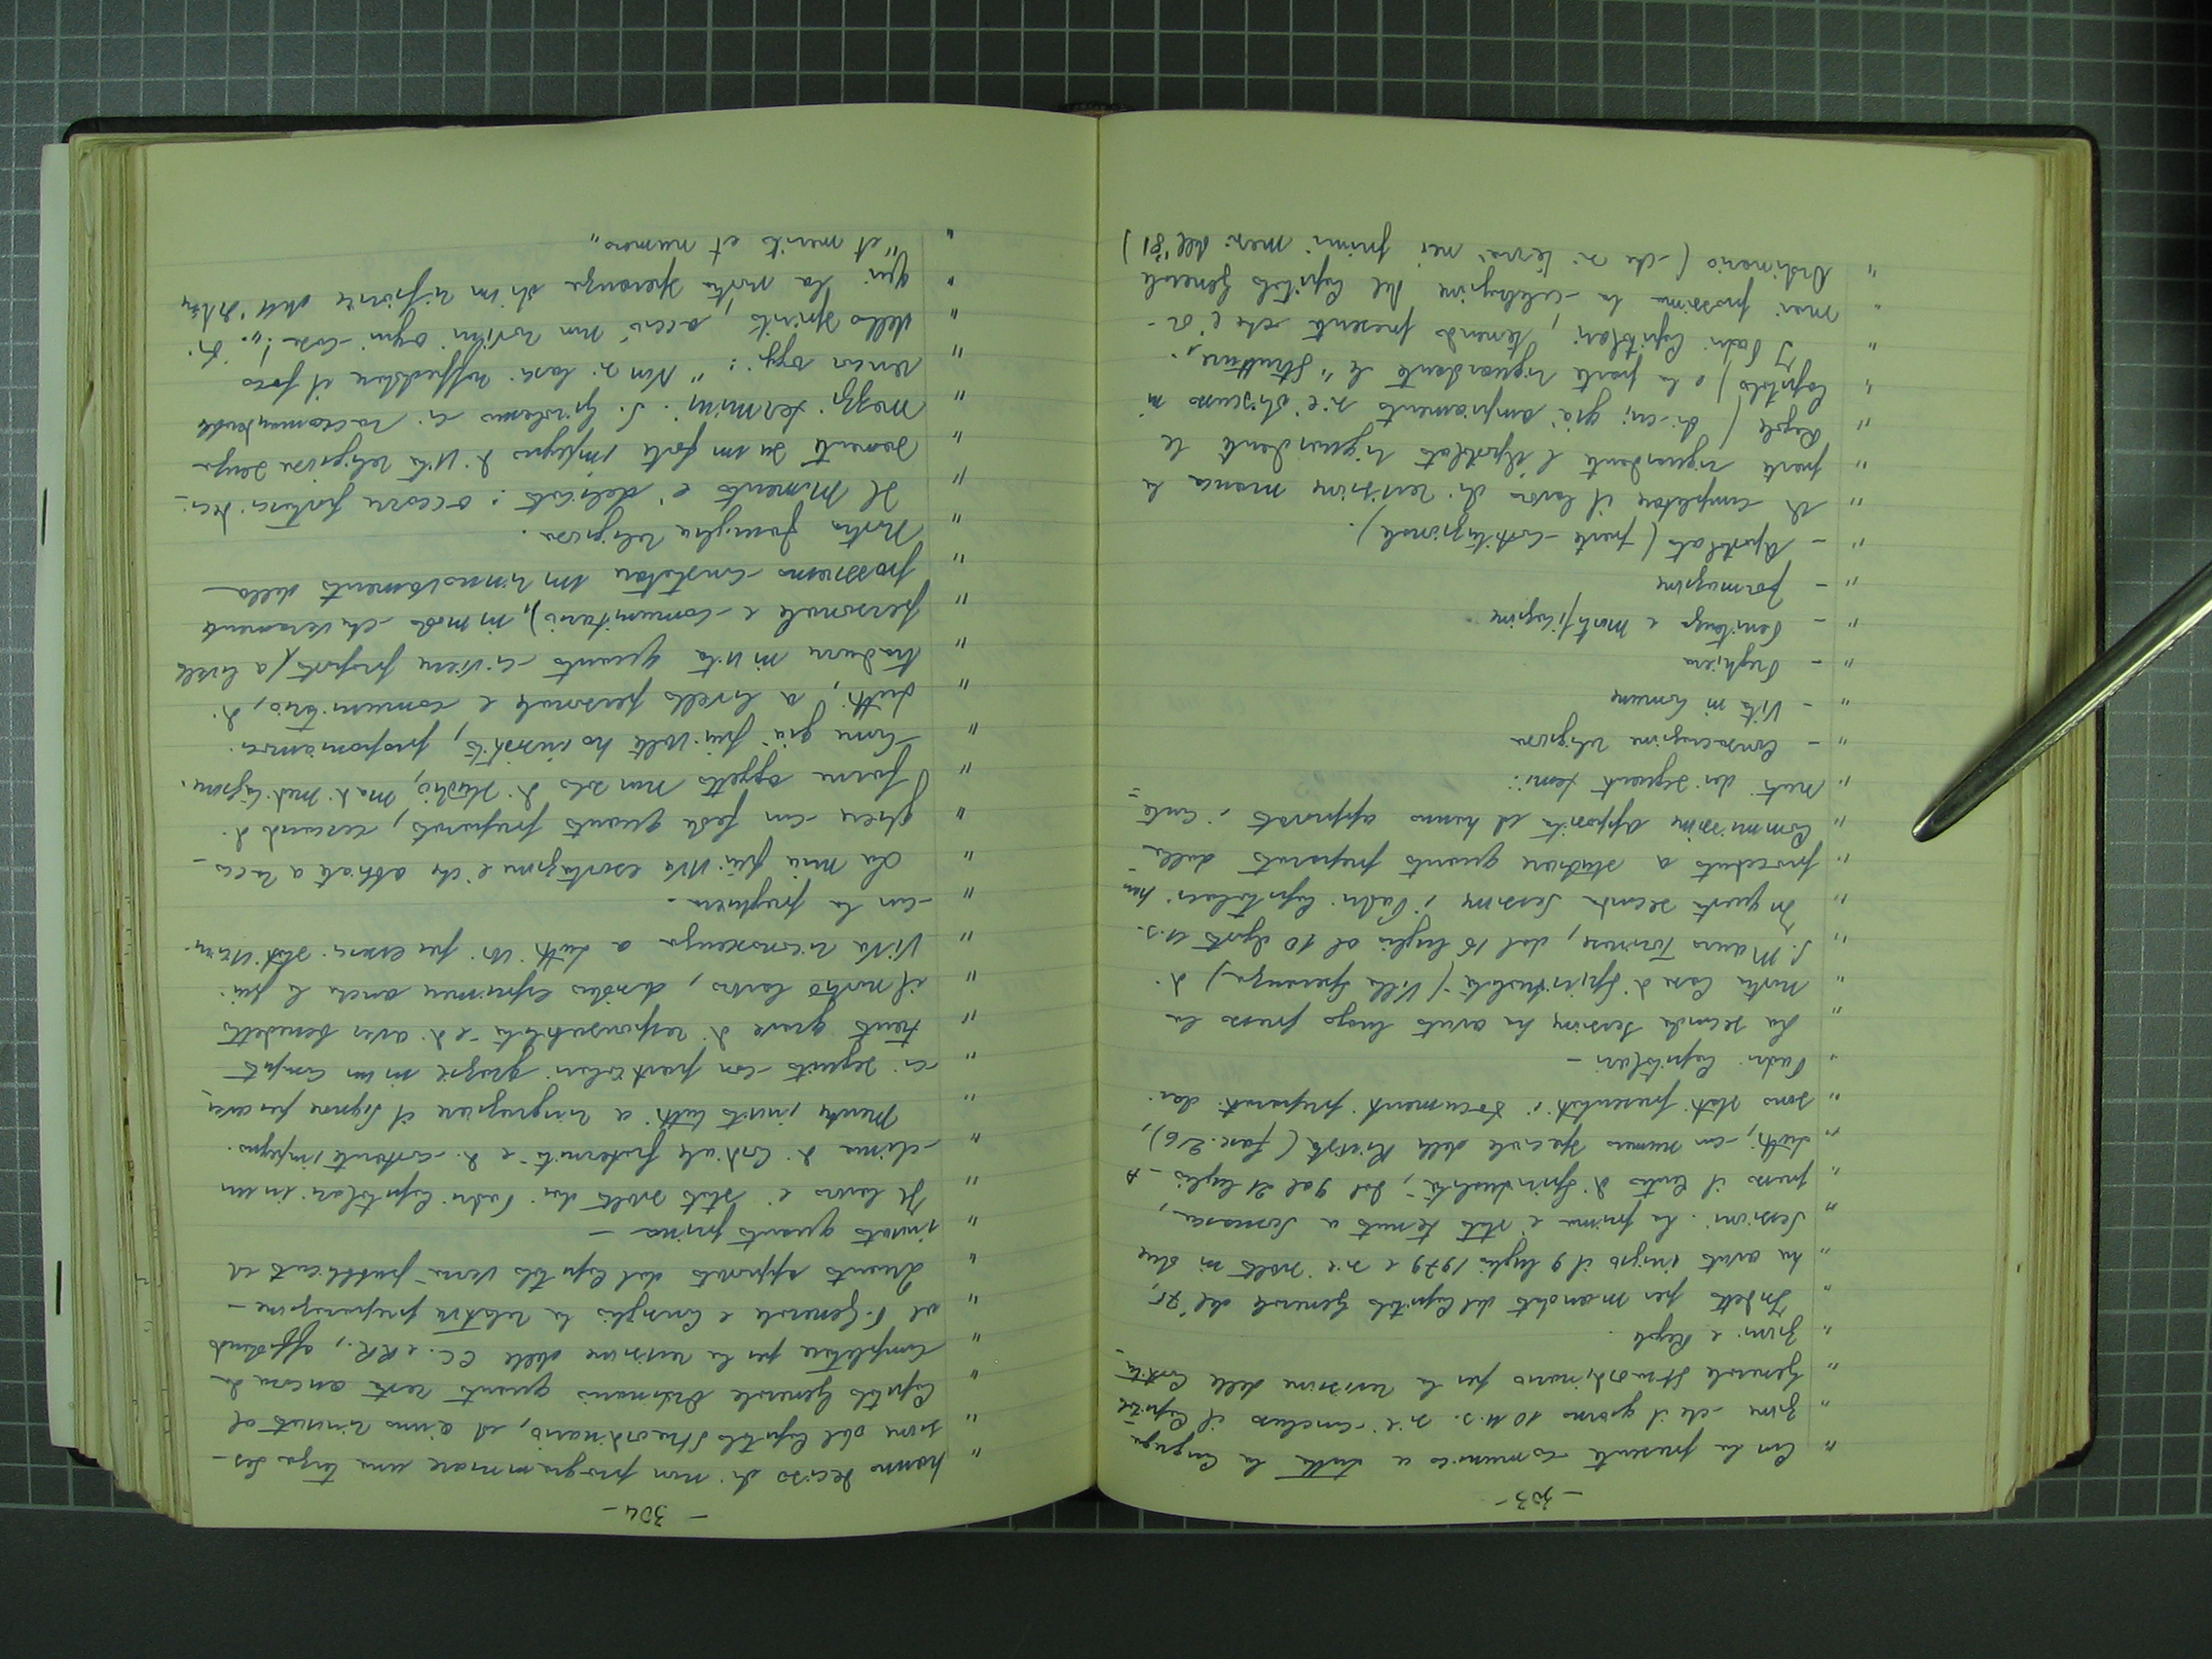 - 303 -
" Con la presente comunico a tutta la Congrega
" zione che il giorno 10 u.s. si è concluso il Capitolo
" Generale Straordinario per la revisione delle Costitu
" zioni e Regole.
" Indetto per mandato del Capitolo Generale del '75,
" ha avuto inizio il 9 luglio 1979 e si è svolto in due
" Sessioni. La prima è stata tenuta a Somasca,
" presso il Centro di Spiritualità, dal 9 al 21 luglio. A
" tutti, con numero speciale della Rivista (fasc. 216),
" sono stati presentati i documenti preparati dai
" Padri Capitolari -
" La seconda Sessione ha avuto luogo presso la
" nostra Casa di Spiritualità (Villa Speranza) di
" S. Mauro Torinese, dal 16 luglio al 10 agosto u.s.
" In questa seconda Sessione i Padri Capitolari han
" proceduto a studiare quanto preparato dalla
" Commissione apposita ed hanno approvato i conte=
" nuti dei seguenti temi:
" - Consacrazione religiosa
" - Vita in Comune
" - Preghiera
" - Penitenza e Mortificazione
" - Formazione
" - Apostolato (parte costituzionale).
" A completare il lavoro di revisione manca la
" parte riguardante l'Apostolato riguardante le
" Regole (di cui già ampiamente si è discusso in
" Capitolo) e la parte riguardante le "Strutture".
" I Padri Capitolari, tenendo presente che è or-
" mai prossima la celebrazione del Capitolo Generale
" Ordinario (che si terrà nei primi mesi dell'81)
- 304 -
" hanno deciso di non programmare una terza Ses-
" sione del Capitolo Straordinario, ed hanno rinviato al
" Capitolo Generale Ordinario quanto resta ancora da
" completare per la revisione delle CC. e RR., affidando
" al P. Generale e Consiglio la relativa preparazione -
" Quanto approvato dal Capitolo verrà pubblicato ed
" inviato quanto prima -
" Il lavoro è stato svolto dai Padri Capitolari in un
" clima di cordiale fraternità e di costante impegno.
" Mentre invito tutti a ringraziare il Signore per aver
" ci seguito con particolari grazie in un compito
" tanto grave di responsabilità e di aver benedetto
" il nostro lavoro, desidero esprimere anche la più
" viva riconoscenza a tutti voi per esserci stati vicini
" con la preghiera -
" La mia più viva esortazione è che abbiate a acco-
" gliere con fede quanto preparato, cercando di
" farne oggetto non solo di studio, ma di meditazione.
" Come già più volte ho insistito, proponiamoci
" tutti, a livello personale e comunitario, di
" tradurre in vita quanto ci viene proposto (a livello
" personale e comunitario), in modo che veramente
" possiamo constatare un rinnovamento della
" Nostra famiglia religiosa.
" Il momento è delicato: occorre portarci deci-
" samente su un forte impegno di vita religiosa senza
" mezzi termini. S. Girolamo ci raccomanderebbe
" ancor oggi: "Non si lasci raffreddare il foco
" dello Spirito, acciò non rovini ogni cosa!". Di
" qui la nostra speranza di un rifiorire dell'Ordine
" "et merito et numero"